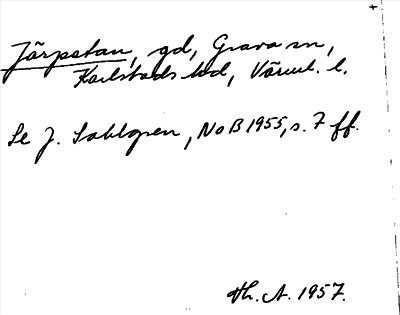 Järpetan, gd, Grava sn,
Karlstads hd, Värml. l.
Se J. Sahlgren, NoB 1955, s. 7 ff.
Th. A. 1957.